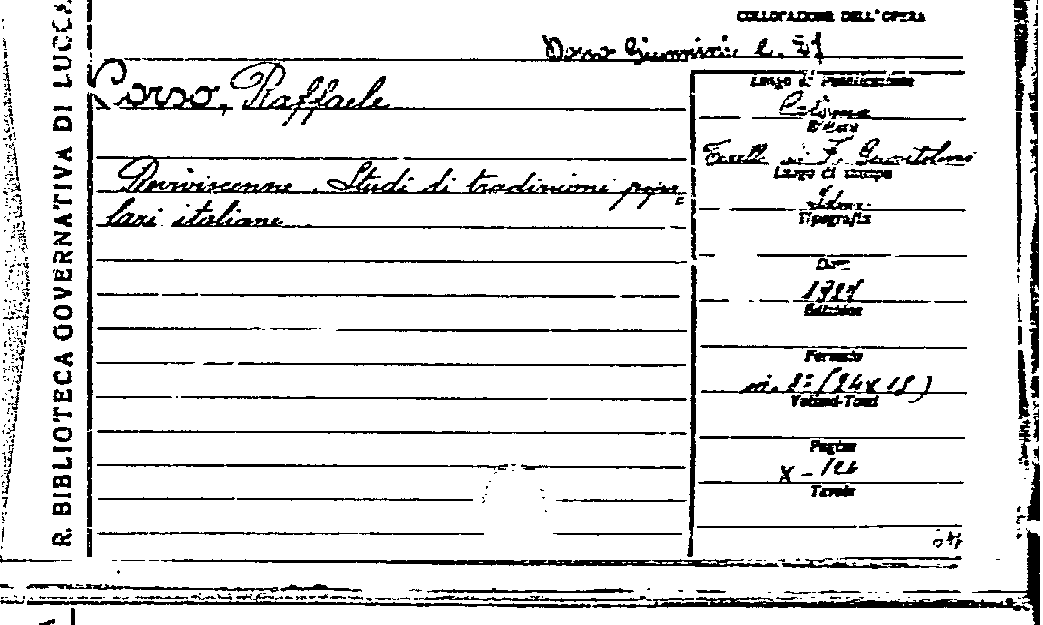 COLLOCAZIONE DELL'OPERA
Dono Giannini. C.
R. BIBLIOTECA GOVERNATIVA DI LUCCA
Corso, Raffaele
Reviviscenze. Studi di tradizioni popo=
lari italiane.
Luogo di Pubblicazione
Catania
Editore
Tirelli di F. Guaitolini
Luogo di stampa
Id.
Tipografia
Data
1927
Edizione
Formato
in. 8º (24x15)
Volumi-Tomi
Pagine
X-126
Tavole